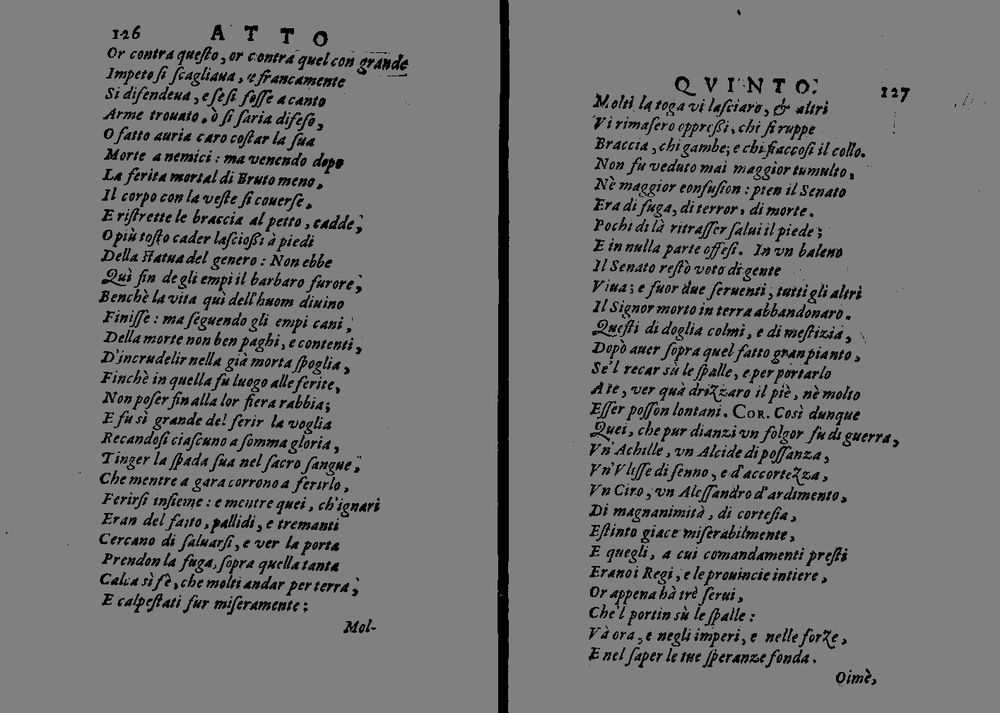 126 ATTO
Or contra queſto, or contra quel con grande
Impeto ſi ſcagliaua, e francamente
Si difendeua, e ſe ſi foſſe a canto
Arme trouato, ò ſi ſaria difeſo,
O fatto auria caro coſtar la ſua
Morte a nemici: ma venendo dopo
La ferita mortal di Bruto meno,
Il corpo con la veſte ſi couerſe,
E riſtrette le braccia al petto, cadde;
O più toſto cader laſcioßi à piedi
Della ſtatua del genero: Non ebbe
Quì fin degli empi il barbaro furore;
Benchè la vita quì dell'huom diuino
Finiſſe: ma ſeguendo gli empi cani,
Della morte non ben paghi, e contenti,
D'incrudelir nella già morta ſpoglia,
Finchè in quella fu luogo alle ferite,
Non poſer fin alla lor fiera rabbia;
E fu sì grande del ferir la voglia
Recandoſi ciaſcuno a ſomma gloria,
Tinger la ſpada ſua nel ſacro ſangue,
Che mentre a gara corrono a ferirlo,
Ferirſi inſieme: e mentre quei, ch'ignari
Eran del fatto, pallidi, e tremanti
Cercano di ſaluarſi, e ver la porta
Prendon la fuga, ſopra quella tanta
Calca sì fè, che molti andar per terra,
E calpeſtati fur miſeramente:
Mol-
QVINTO. 127
Molti la toga vi laſciaro, & altri
Vi rimaſero oppreßi, chi ſi ruppe
Braccia, chi gambe; e chi fiaccoſi il collo.
Non fu veduto mai maggior tumulto,
Nè maggior confuſion: pien il Senato
Era di fuga, di terror, di morte.
Pochi di là ritraſſer ſalui il piede;
E in nulla parte offeſi. In vn baleno
Il Senato reſtò voto di gente
Viua; e fuor due ſeruenti, tutti gli altri
Il Signor morto in terra abbandonaro.
Queſti di doglia colmi, e di meſtizia,
Dopò auer ſopra quel fatto gran pianto,
Se'l recar sù le ſpalle, e per portarlo
A te, ver quà drizzaro il piè, nè molto
Eſſer poſſon lontani. COR. Così dunque
Quei, che pur dianzi vn folgor fu di guerra,
Vn'Achille, vn Alcide di poſſanza,
Vn'Vliſſe di ſenno, e d'accortezza,
Vn Ciro, vn Aleſſandro d'ardimento,
Di magnanimità, di corteſia,
Eſtinto giace miſerabilmente,
E quegli, a cui comandamenti preſti
Erano i Regi, e le prouincie intiere,
Or appena hà trè ſerui,
Che'l portin sù le ſpalle:
Và ora, e negli imperi, e nelle forze,
E nel ſaper le tue ſperanze fonda.
Oimè,